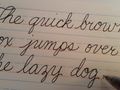 The quick brown
ox jumps over
he lazy dog.